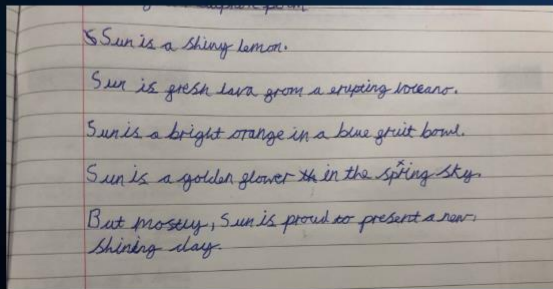 Sun is a shiny lemon.
Sun is fresh lava from a erupting volcano.
Sun is a bright orange in a blue fruit bowl.
Sun is a golden flower in the spring sky.
But mostly, Sun is proud to present a new,
shining day.